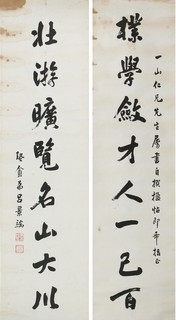 樸學斂才人一己百
一山仁兄先生屬書自撰楹帖即希指正
壯游曠覽名山大川
弟呂景端